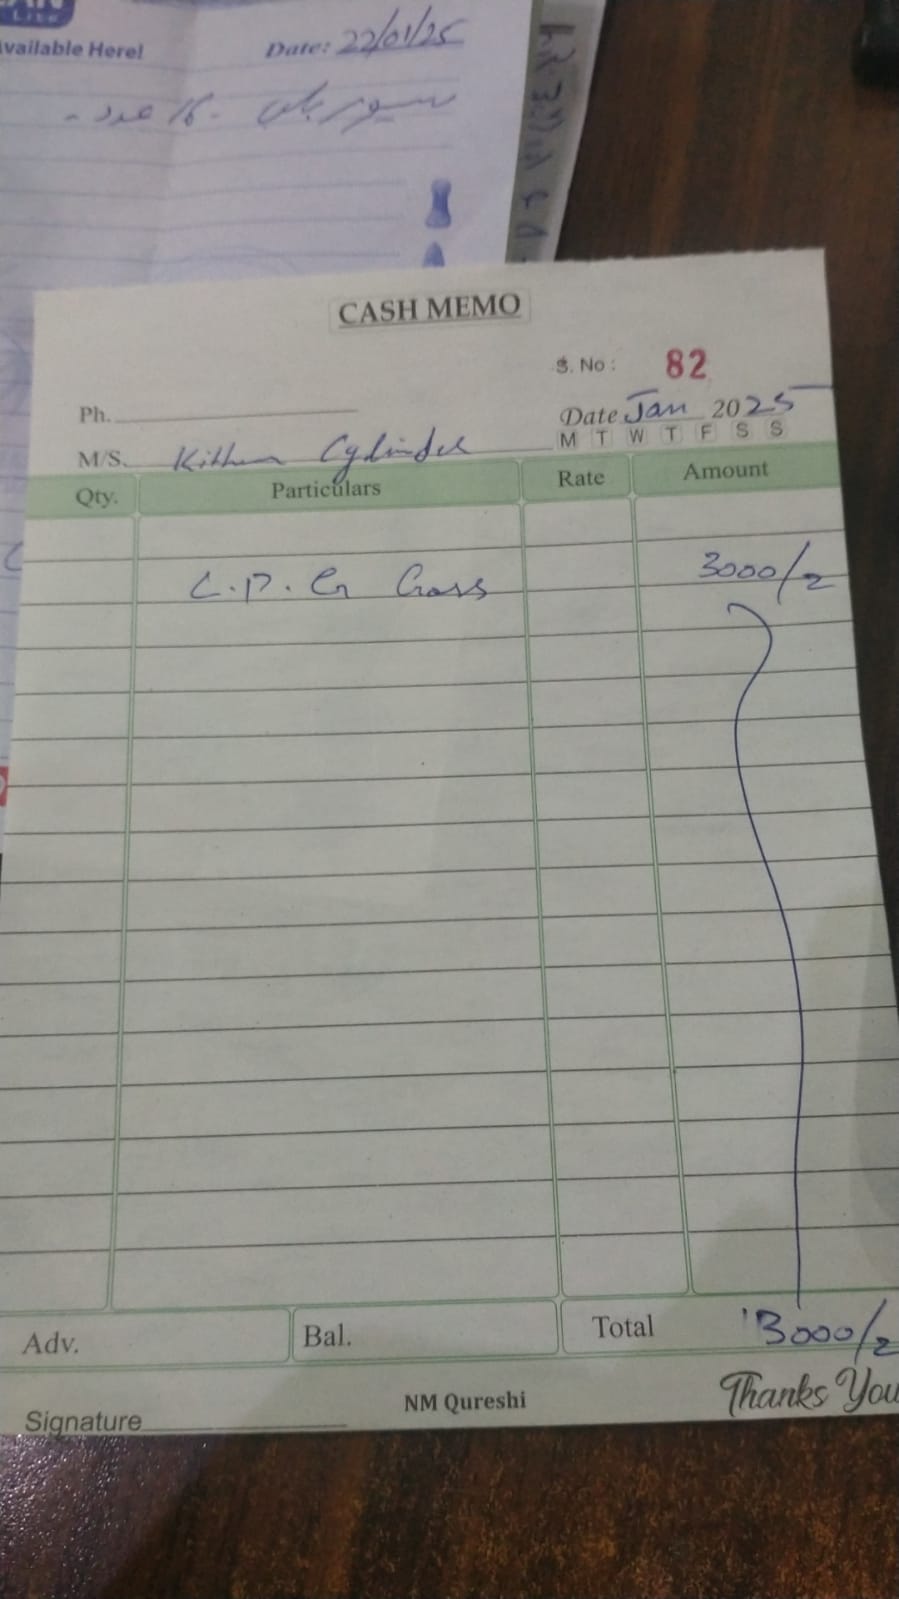 Lite
Available Here!
Date: 22/01/25
عدد
CASH MEMO
S. No: 82
Ph.
Date Jan 2025
M T W T F S S
M/S. Kithen Cylinder
Qty. Particulars Rate Amount
L.P.G Gass 3000/=
Adv. Bal. Total 3000/=
Signature NM Qureshi Thanks You